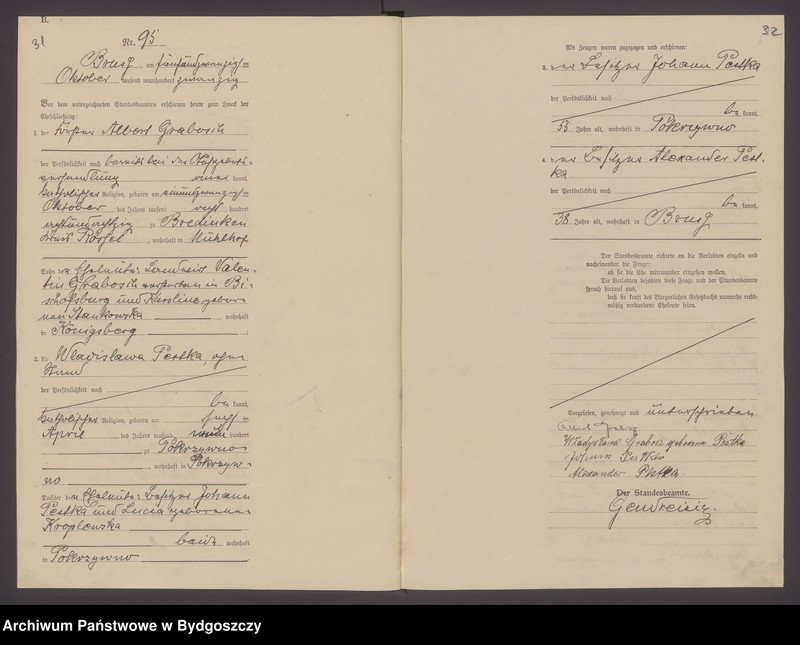 B.
31
Nr. 95
Brusy am fünfundzwanzig=
Oktober tausend neunhundert zwanzig
Vor dem unterzeichneten Standesbeamten erschienen heute zum Zweck der
Eheschließung:
1. der Förster Albert Grabosch
der Persönlichkeit nach bereits bei der Aufgebots-
verhandlung kannt,
katholischer Religion, geboren am einundzwanzig=
Oktober des Jahres tausend acht hundert
achtundachtzig zu Bredinken
Kreis Rössel, wohnhaft in Mühlhof
Sohn der Eheleute: Landwirt Valen-
tin Grabosch verstorben in Bi-
schofsburg und Karoline gebore-
nen Stankowska wohnhaft
in Königsberg ;
2. die Wladislawa Pestka, ohne
Stand
der Persönlichkeit nach
be kannt,
katholischer Religion, geboren am sech=
April des Jahres tausend neun hundert
zu Pokrzywno
, wohnhaft in Pokrzyw-
no
Tochter der Eheleute: Besitzer Johann
Pestka und Lucia geborenen
Kroplewska
beide wohnhaft
in Pokrzywno .
32
Als Zeugen waren zugezogen und erschienen:
3. der Besitzer Johann Pestka
der Persönlichkeit nach
be kannt,
53 Jahre alt, wohnhaft in Pokrzywno
4. der Besitzer Alexander Pest-
ka
der Persönlichkeit nach
be kannt,
38 Jahre alt, wohnhaft in Brusy
Der Standesbeamte richtete an die Verlobten einzeln und
nacheinander die Frage:
ob sie die Ehe miteinander eingehen wollen.
Die Verlobten bejahten diese Frage und der Standesbeamte
sprach hierauf aus,
daß sie kraft des Bürgerlichen Gesetzbuchs nunmehr recht-
mäßig verbundene Eheleute seien.
Vorgelesen, genehmigt und unterschrieben
Władysława Grabosz geborene Pestka
Johann Pestka
Alexander Pestka
Der Standesbeamte.
Archiwum Państwowe w Bydgoszczy